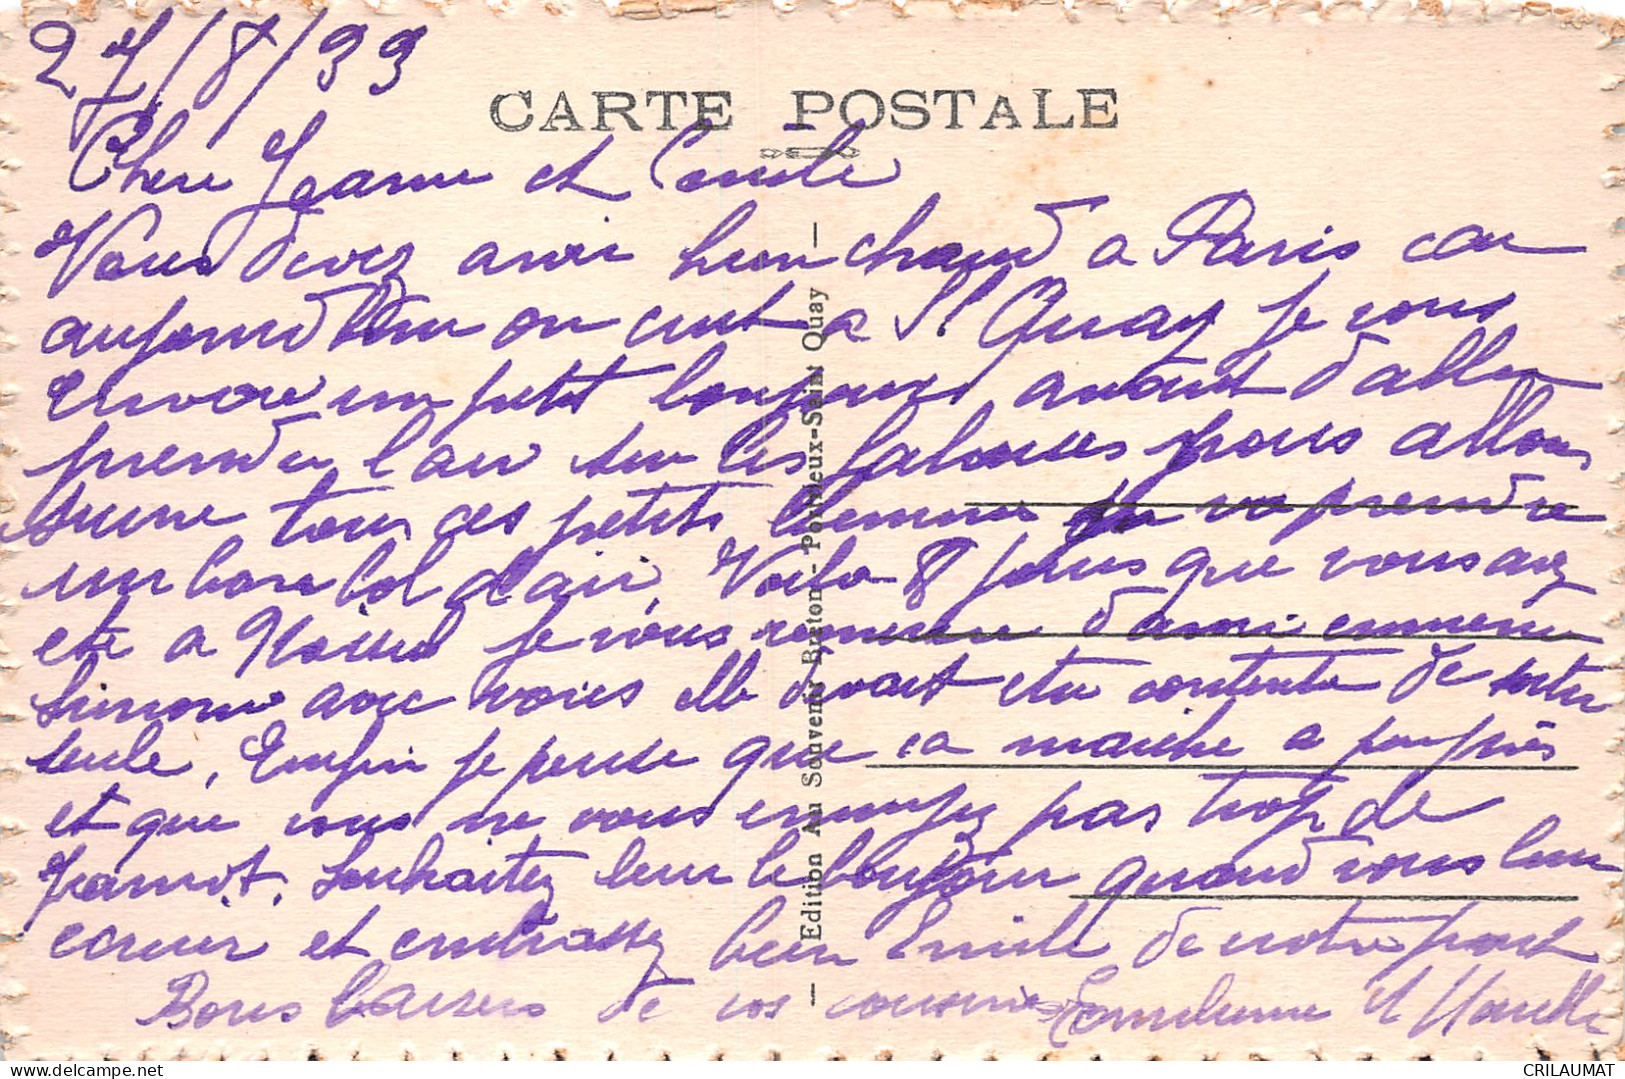 27/8/33
CARTE POSTALE
Chere Jeanne et Emile
Vous devez avoir bien chaud a Paris car
aujourd'hui on cuit a St Quay je vous
envoie un petit bonjour avant d'aller
prendre l'air sur les falaises nous allons
suivre tous ces petits chemins va prendre
un bon bol d'air. Voila 8 jours que vous avez
ete a je vous remercie d'avoir emmener
Simone avec vous elle devait etre contente de sortir
seule. Enfin je pense que ca marche a peu près
et que vous ne vous ennuyez pas trop de
Jeannot. Souhaitez leur le bonjour quand vous leur
et embrassez bien Emile de notre part
Bons baisers de vos cousines et
Edition Au Souvenir Breton - Portrieux-Saint Quay
CRILAUMAT